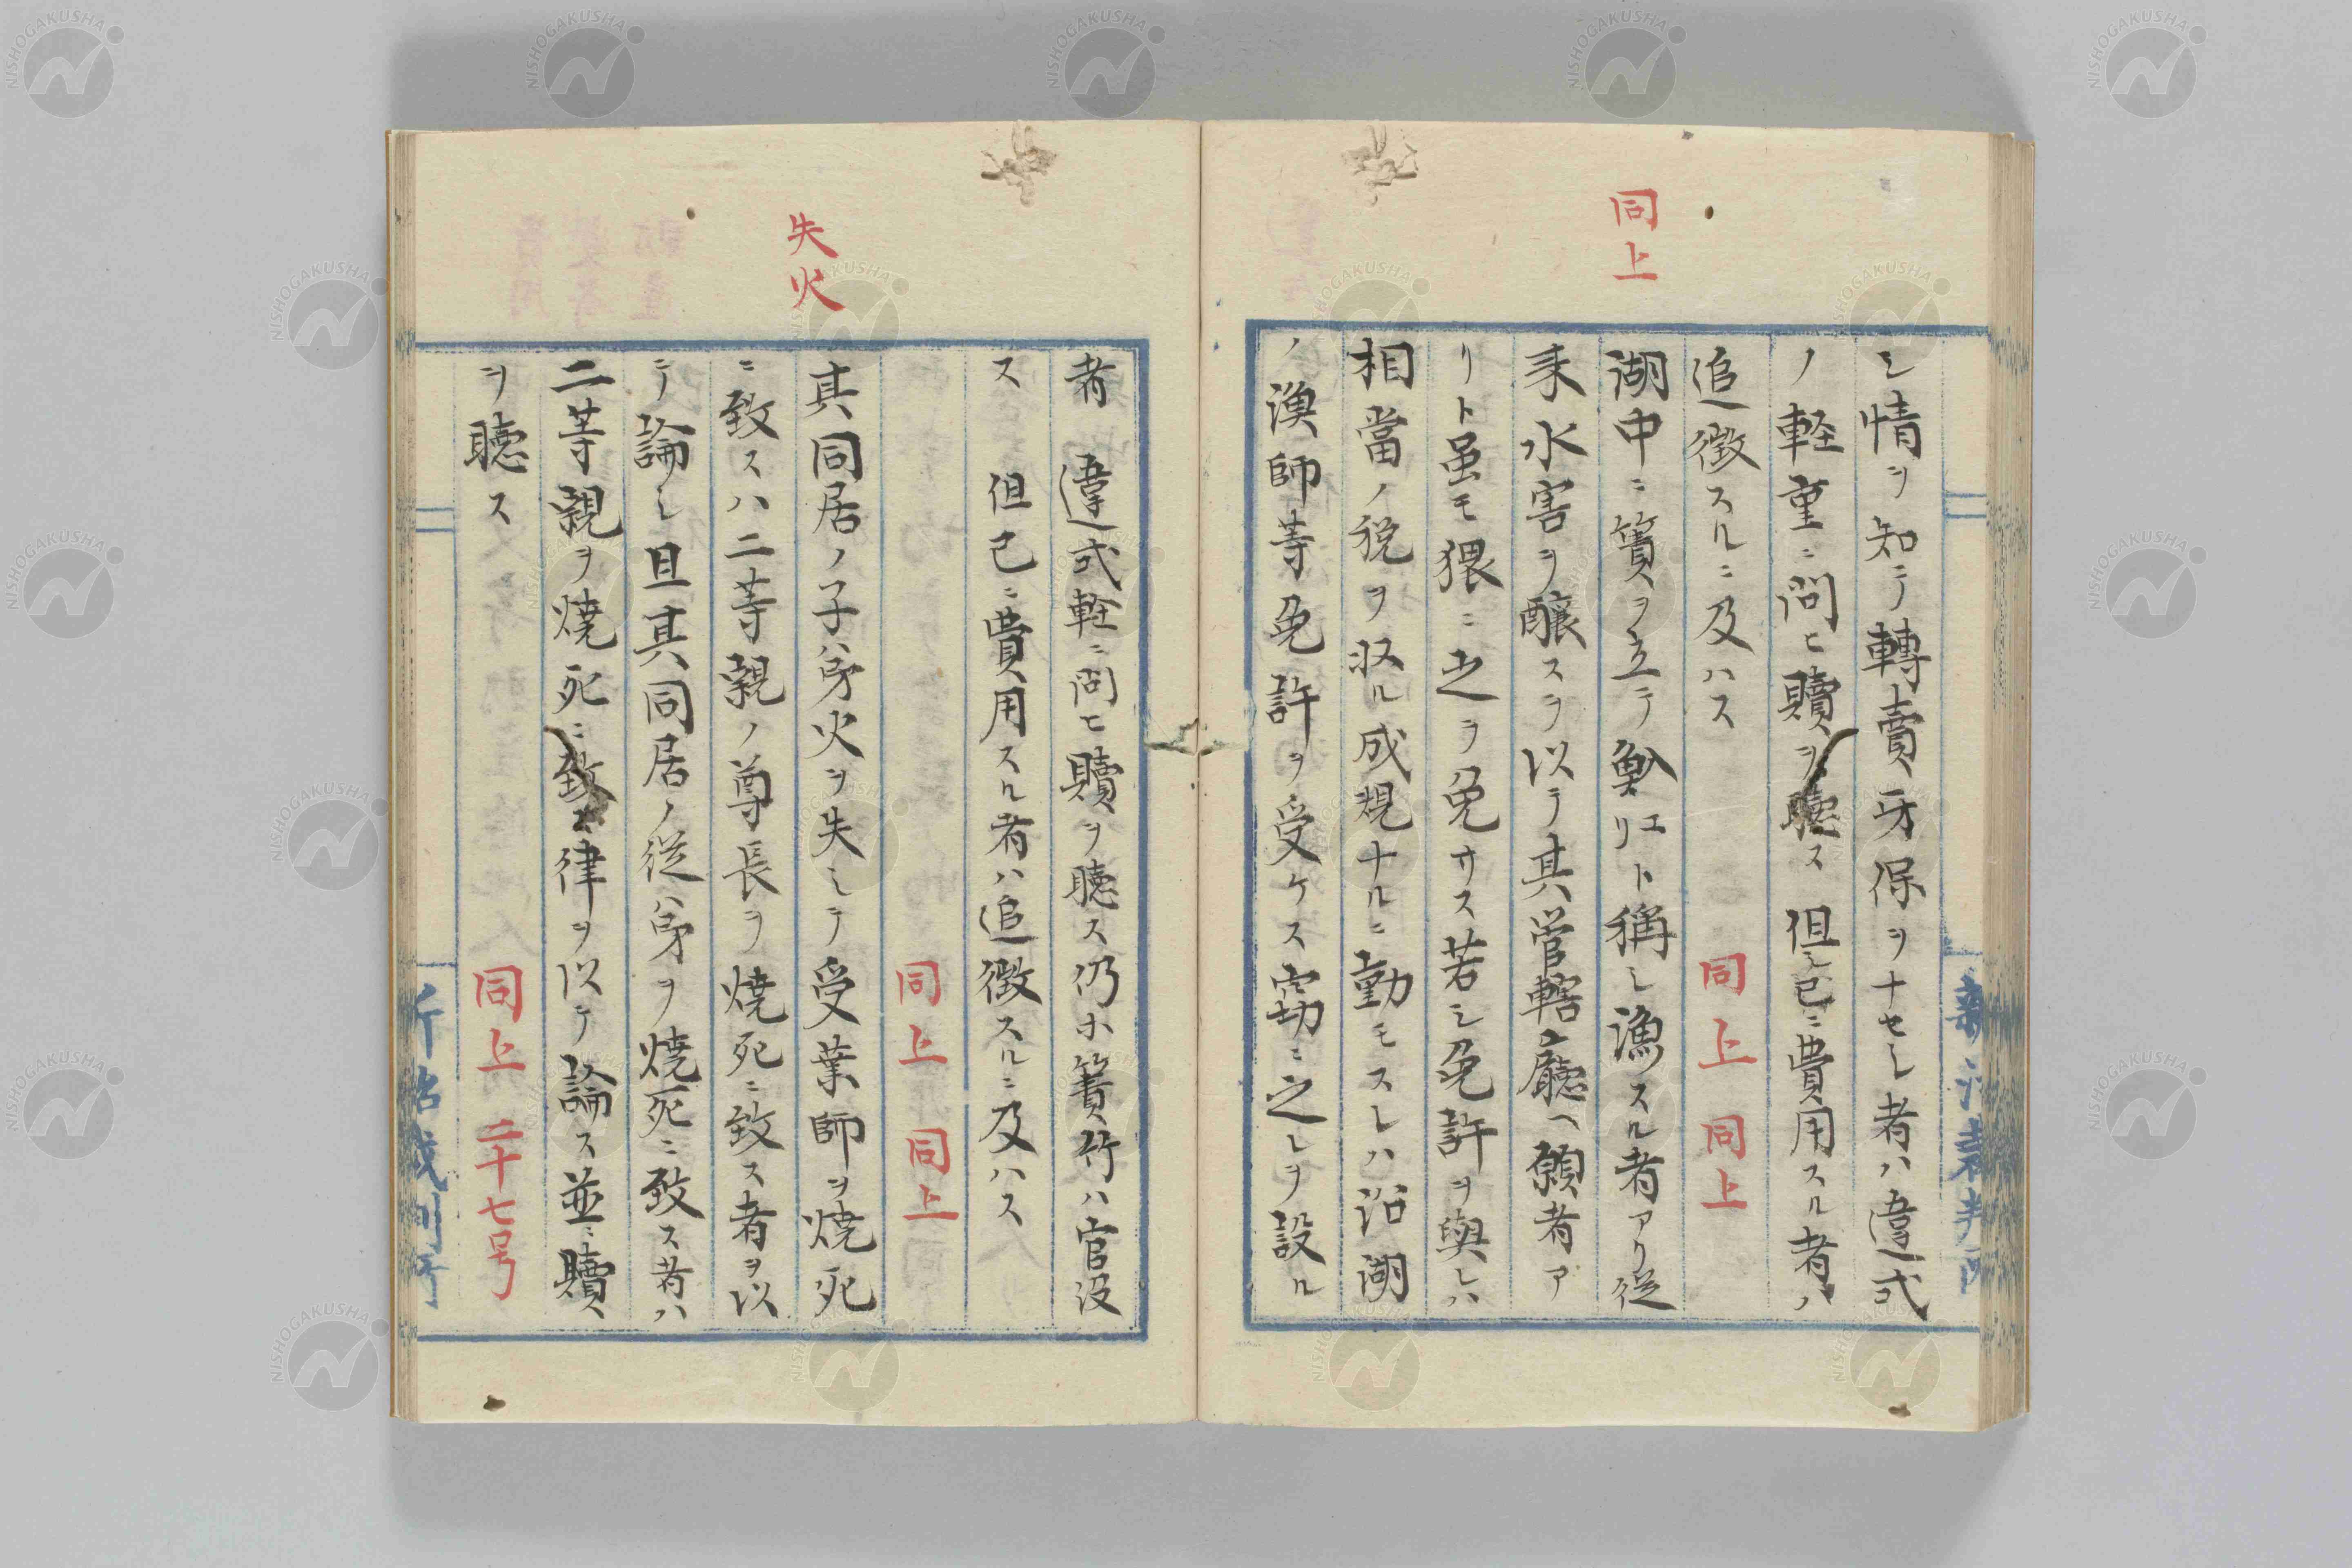 同上
シ情ヲ知テ轉賣牙保ヲナセシ者ハ違式
ノ軽重ニ問ヒ贖ヲ聴ス但シ已ニ費用スル者ハ
追徴スルニ及ハス 同上 同上
湖中ニ簀ヲ立テ魞エリト稱シ漁スル者アリ従
来水害ヲ醸スヲ以テ其管轄廳ヘ願者ア
リト虽モ猥ニ之ヲ免サス若シ免許ヲ與レハ
相當ノ税ヲ収ル成規ナルニ動モスレハ沿湖
ノ漁師等免許ヲ受ケス窃ニ之レヲ設ル
失火
者違式軽ニ問ヒ贖ヲ聴ス仍ホ簀竹ハ官没
ス但已ニ費用スル者ハ追徴スルニ及ハス
同上 同上
其同居ノ子弟火ヲ失シテ受業師ヲ焼死
ニ致スハ二等親ノ尊長ヲ焼死ニ致ス者ヲ以
テ論シ且其同居ノ従弟ヲ焼死ニ致ス者ハ
二等親ヲ焼死ニ致ス律ヲ以テ論ス並ニ贖
ヲ聴ス 同上 二十七号
NISHOGAKUSHA